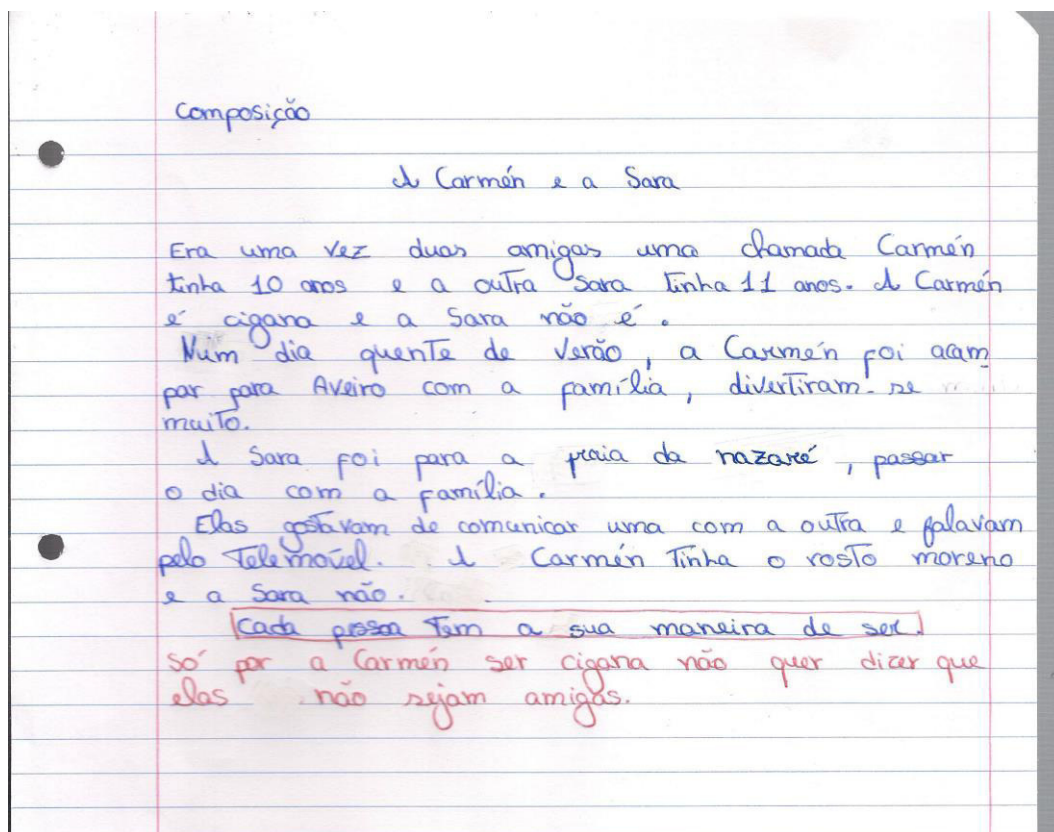 Composição
A Carmén e a Sara
Era uma vez duas amigas uma chamada Carmén
tinha 10 anos e a outra Sara tinha 11 anos. A Carmén
é cigana e a Sara não é.
Num dia quente de Verão, a Carmén foi acam
par para Aveiro com a família, divertiram-se
muito.
A Sara foi para a praia da nazaré, passar
o dia com a família.
Elas gostavam de comunicar uma com a outra e falavam
pelo Telemóvel. A Carmén Tinha o rosto moreno
e a Sara não.
Cada pessoa Tem a sua maneira de ser.
Só por a Carmén ser cigana não quer dizer que
elas não sejam amigas.